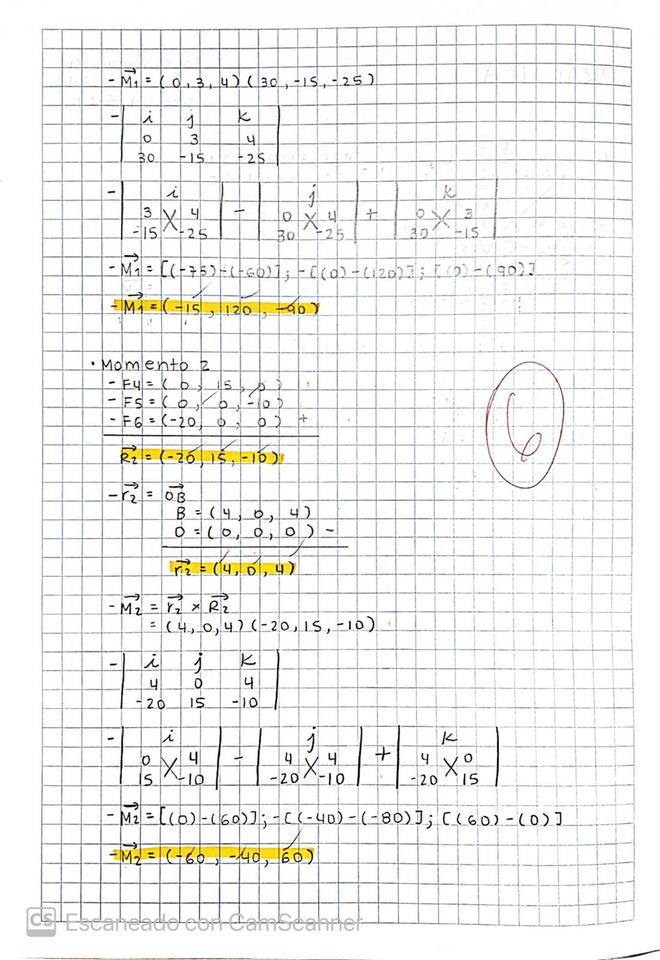 - M₁ = (0, 3, 4) (30, -15, -25)
- | i j k |
0 3 4
30 -15 -25
- | i | - | j | + | k |
3 4 0 4 0 3
-15 -25 30 -25 30 -15
- M₁ = [(-75) - (-60)]; -[(0) - (120)]; [(0) - (90)]
- M₁ = (-15, 120, -90)
• Momento 2
- F4 = (0, 15, 0)
- F5 = (0, 0, -10)
- F6 = (-20, 0, 0) +
R₂ = (-20, 15, -10)
- r₂ = OB
B = (4, 0, 4)
O = (0, 0, 0) -
r₂ = (4, 0, 4)
- M₂ = r₂ × R₂
= (4, 0, 4) (-20, 15, -10)
- | i j k |
4 0 4
-20 15 -10
- | i | - | j | + | k |
0 4 4 4 4 0
15 -10 -20 -10 -20 15
- M₂ = [(0) - (60)]; -[(-40) - (-80)]; [(60) - (0)]
- M₂ = (-60, -40, 60)
6
CS Escaneado con CamScanner